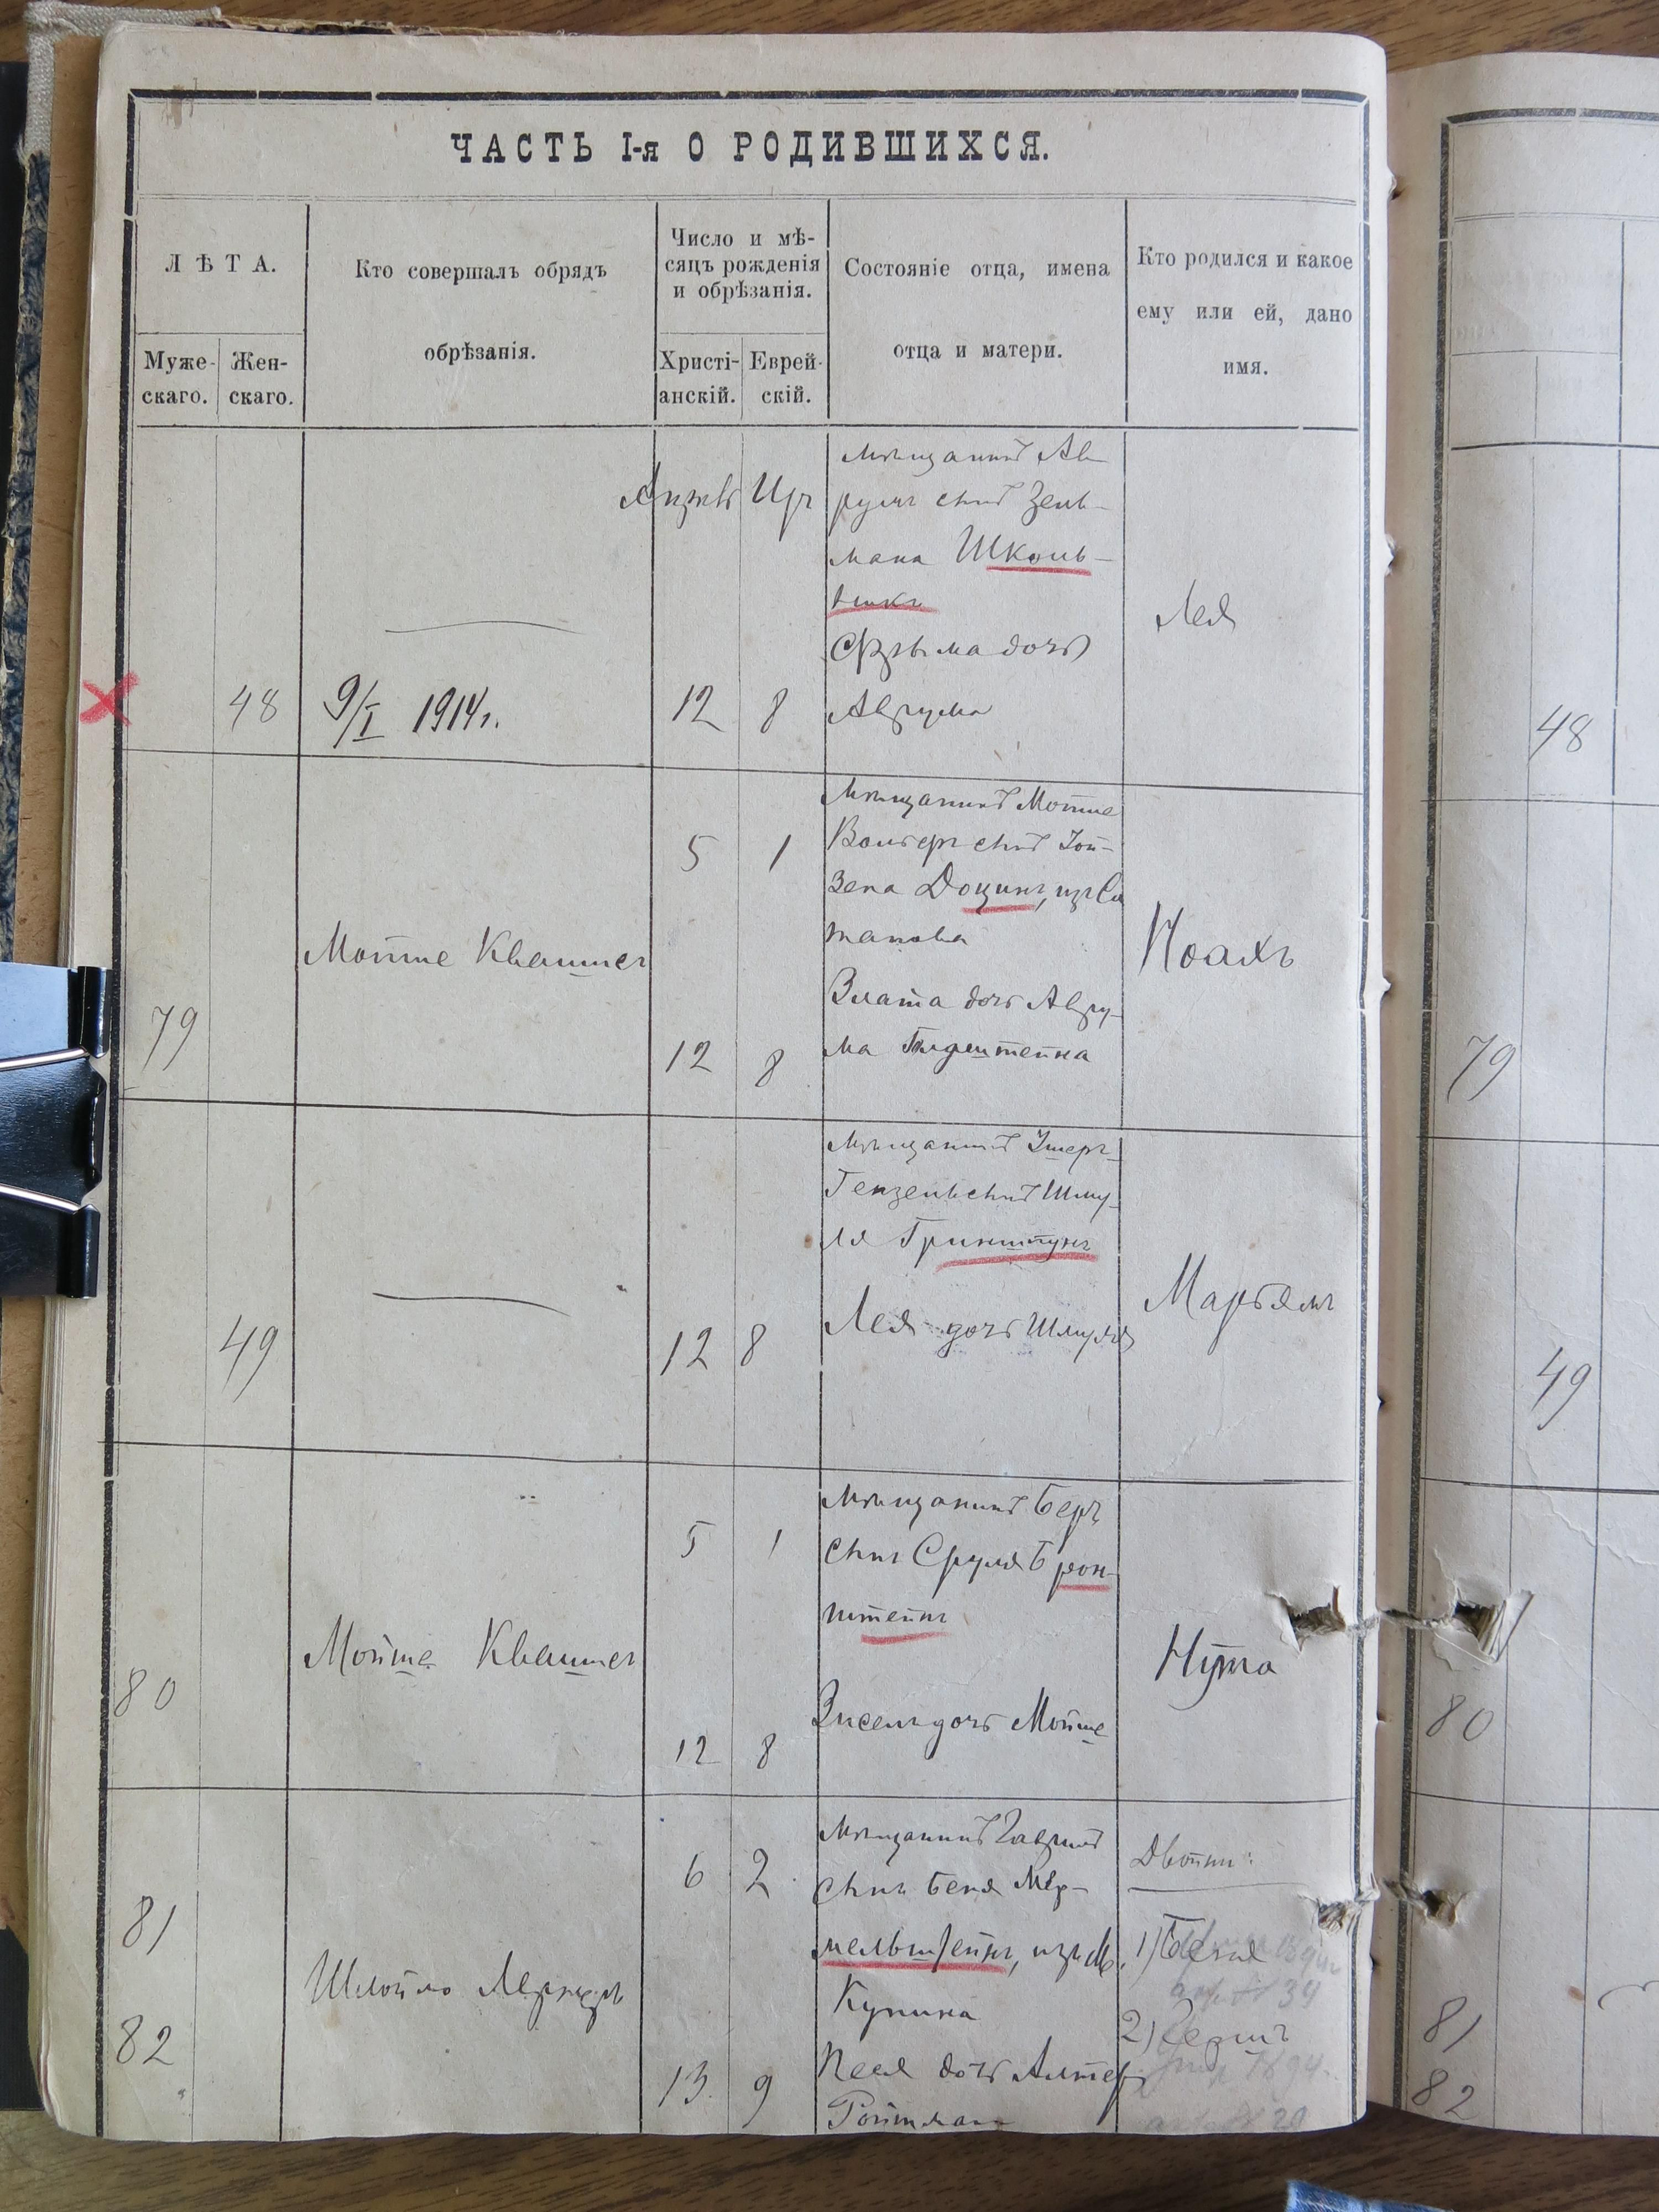 ЧАСТЬ I-я О РОДИВШИХСЯ.
ЛѢТА.
Муже-
скаго.
Жен-
скаго.
Кто совершалъ обрядъ
обрѣзанія.
Число и мѣ-
сяцъ рожденія
и обрѣзанія.
Христі-
анскій.
Еврей-
скій.
Состояніе отца, имена
отца и матери.
Кто родился и какое
ему или ей, дано
имя.
48
9/I 1914г.
12
8
мѣщанинъ Ав-
румъ сынъ Зель-
мана Школь-
никъ
дочь
Аврума
Лея
79
Мойше Квашис
5
1
12
8
Мѣщанинъ Мойше
Вольфъ сынъ
Доцинъ, изъ Са
танова
Злата дочь Авру-
ма
Ноахъ
49
12
8
Мѣщанинъ Ушеръ-
Гензель сынъ Шму-
ля Гринштунъ
Лея дочь Шмуля
Марьямъ
80
Мойше Квашис
5
1
12
8
Мѣщанинъ Беръ
сынъ Сруля Брон-
штейнъ
Зисель дочь Мойше
Нута
81
82
Шлойме
6
2
13
9
Мѣщанинъ Гаврилъ
сынъ Беня Мер-
мельштейнъ, изъ м.
Купина
Песя дочь Алтер
Ройтман
Двойни:
1)
39
2)
20
48
79
49
80
81
82